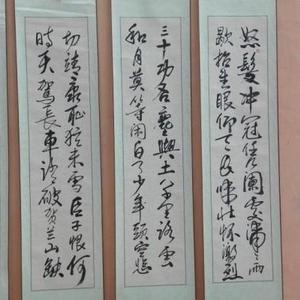 怒髮冲冠凭阑處潇潇雨
歇抬望眼仰天長啸壮怀激烈
三十功名塵與土八千里路雲
和月莫等闲白了少年頭空悲
切靖康恥猶未雪臣子恨何
時灭駕長車踏破贺兰山缺